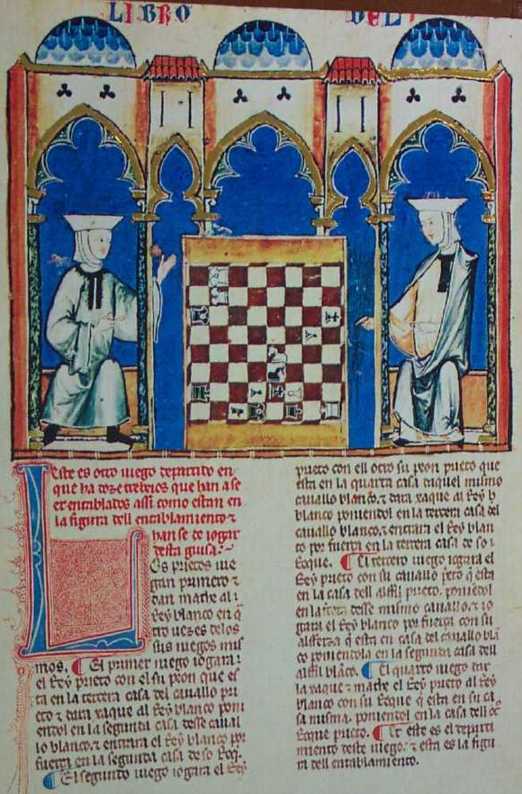 LIBRO DEL
Este es otro iuego departido en
que ha doze trebeios que han a se
er entablados assi como estan en
la figura dell entablamiento ⁊
han se de iogar
desta guisa.
Los prietos iue
gan primero ⁊
dan mathe al
Rey blanco en q̃
tro uezes delos
sus iuegos mis
mos. El primer iuego iogara
el Rey prieto con el su peon que es
ta en la tercera casa del cauallo pri
eto ⁊ dara xaque al Rey blanco poni
endol en la segunda casa desse caual
lo blanco. ⁊ entrara el Rey blanco por
fuerça en la segunda casa de so Roq̃.
El segundo iuego iogara el Rey
prieto con ell otro su peon prieto que
esta en la quarta casa daquel mismo
cauallo blanco. ⁊ dara xaque al Rey
blanco poniendol en la tercera casa del
cauallo blanco. ⁊ entrara el Rey blan
co por fuerça en la tercera casa de so
Roque. El tercero iuego iogara el
Rey prieto con su cauallo prieto q̃ esta
en la casa del alffil prieto. poniendol
en la casa desse mismo cauallo. ⁊ io
gara el Rey blanco por fuerça con su
alfferza q̃ esta en casa del cauallo blã
co poniendola en la segunda casa dell
alffil blãco. El quarto iuego dar
la xaque ⁊ mathe el Rey prieto al Rey
blanco con su Roque q̃ esta en su ca
sa misma. poniendol en la casa dell otro
Roque prieto. Et este es el departi
miento deste iuego. ⁊ esta es la figu
ra dell entablamiento.